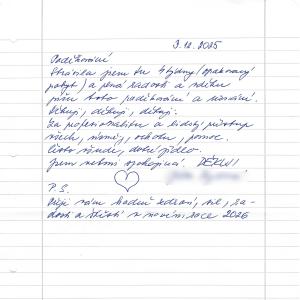 9.12.2025
Poděkování
Strávila jsem tu 4 týdny (opakovaný
pobyt) a plná radosti a vděku
píšu toto poděkování a uznání.
Děkuji, děkuji, děkuji.
Za profesionalitu a lidský přístup
všech, ochotu, pomoc.
Čisto všude, dobré jídlo.
Jsem velmi spokojená. DĚKUJI
P.S.
Přeji vám hodně zdraví, sil, ra-
dosti a štěstí v novém roce 2026